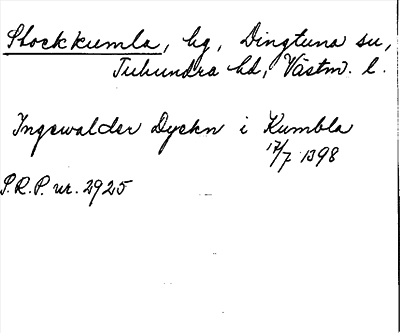 Stockkumla, by, Dingtuna sn,
Tuhundra hd, Västm. l.
Ingewalder Dyekn i Kumbla
17/7 1398
S.R.P. nr. 2925